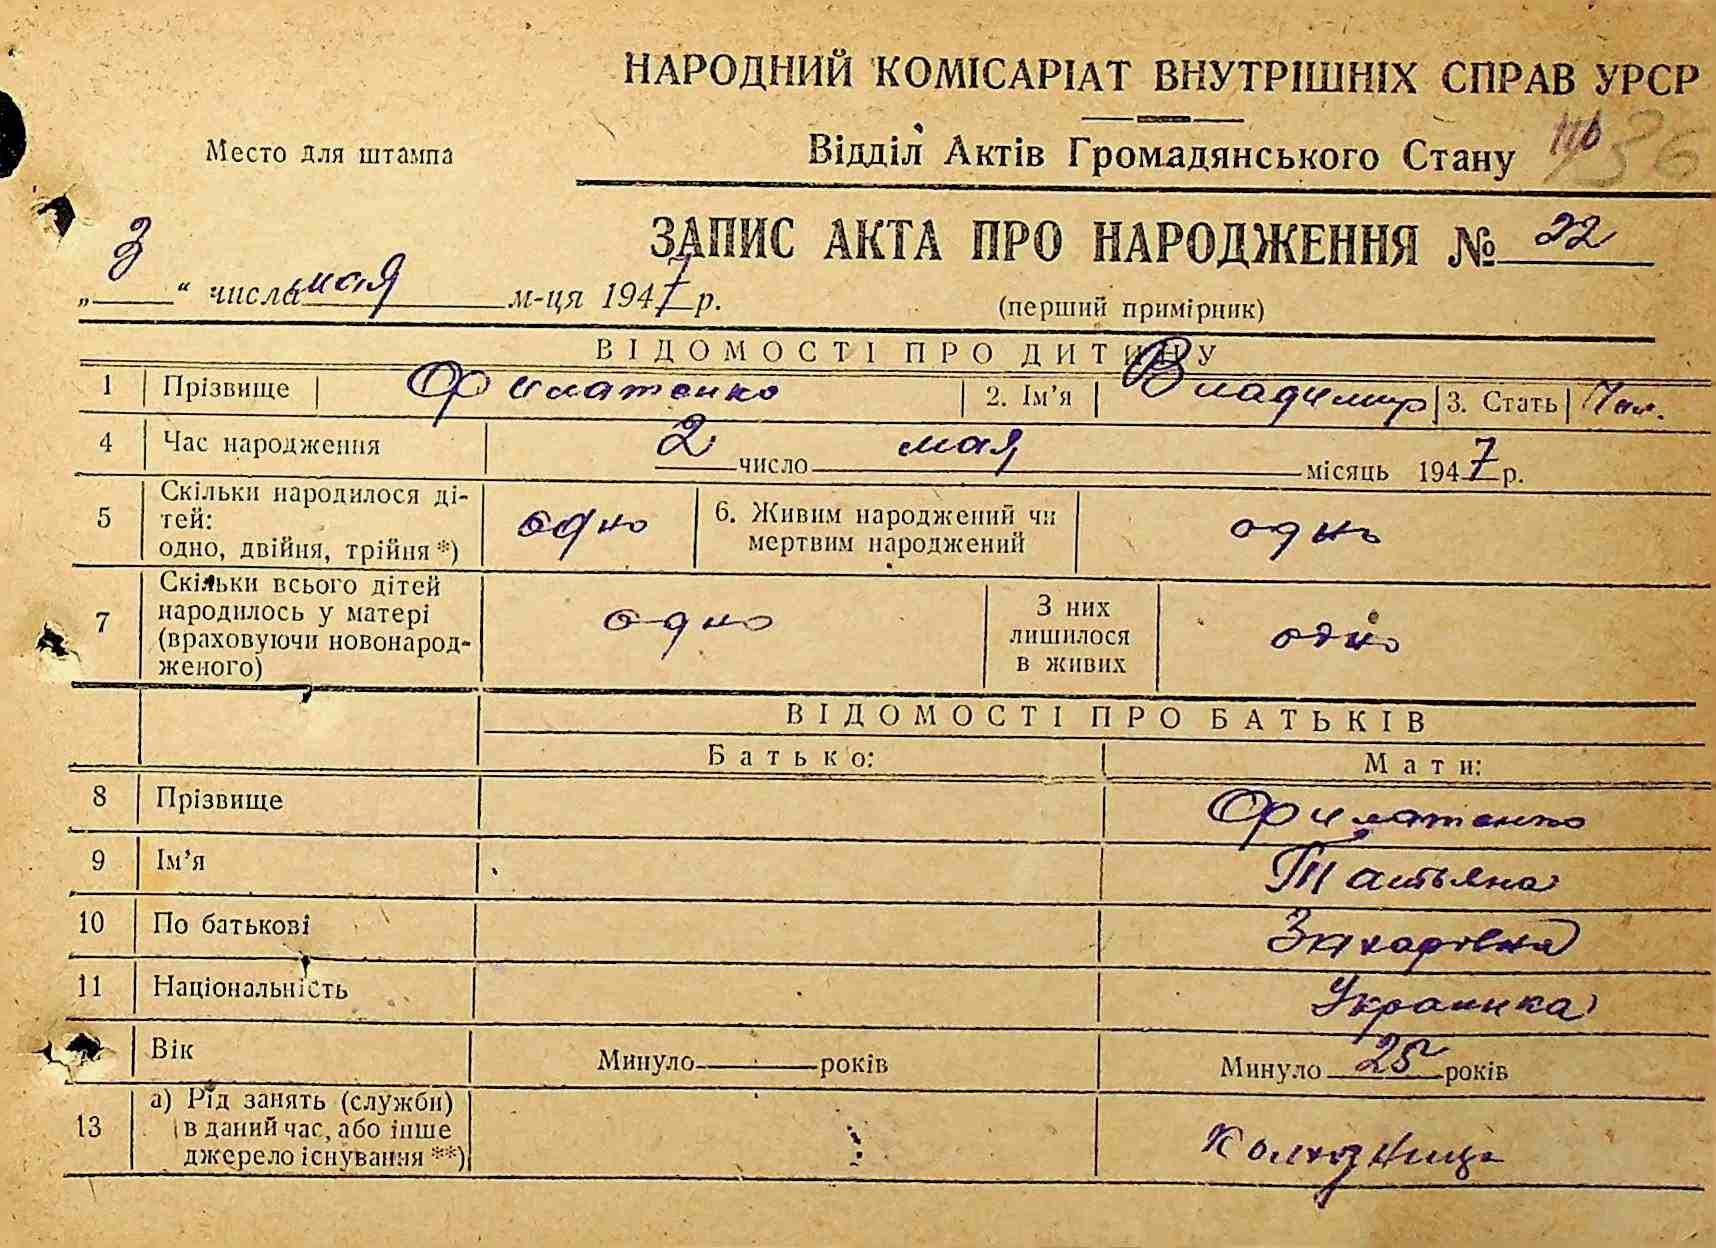 НАРОДНИЙ КОМІСАРІАТ ВНУТРІШНІХ СПРАВ УРСР
Место для штампа
Відділ Актів Громадянського Стану
36
ЗАПИС АКТА ПРО НАРОДЖЕННЯ № 22
„ 3 “ числа мая м-ця 1947 р.
(перший примірник)
ВІДОМОСТІ ПРО ДИТИНУ
1 Прізвище Филатенко 2. Ім’я Владимир 3. Стать Чол.
4 Час народження 2 число мая місяць 1947 р.
5 Скільки народилося ді-
тей:
одно, двійня, трійня *) одно
6. Живим народжений чи
мертвим народжений одно
7 Скільки всього дітей
народилось у матері
(враховуючи новонарод-
женого) одно
З них
лишилося
в живих одно
ВІДОМОСТІ ПРО БАТЬКІВ
Батько: Мати:
8 Прізвище Филатенко
9 Ім’я Татьяна
10 По батькові Захаровна
11 Національність Украинка
Вік Минуло років Минуло 25 років
13 а) Рід занять (служби)
в даний час, або інше
джерело існування **) Колхозница